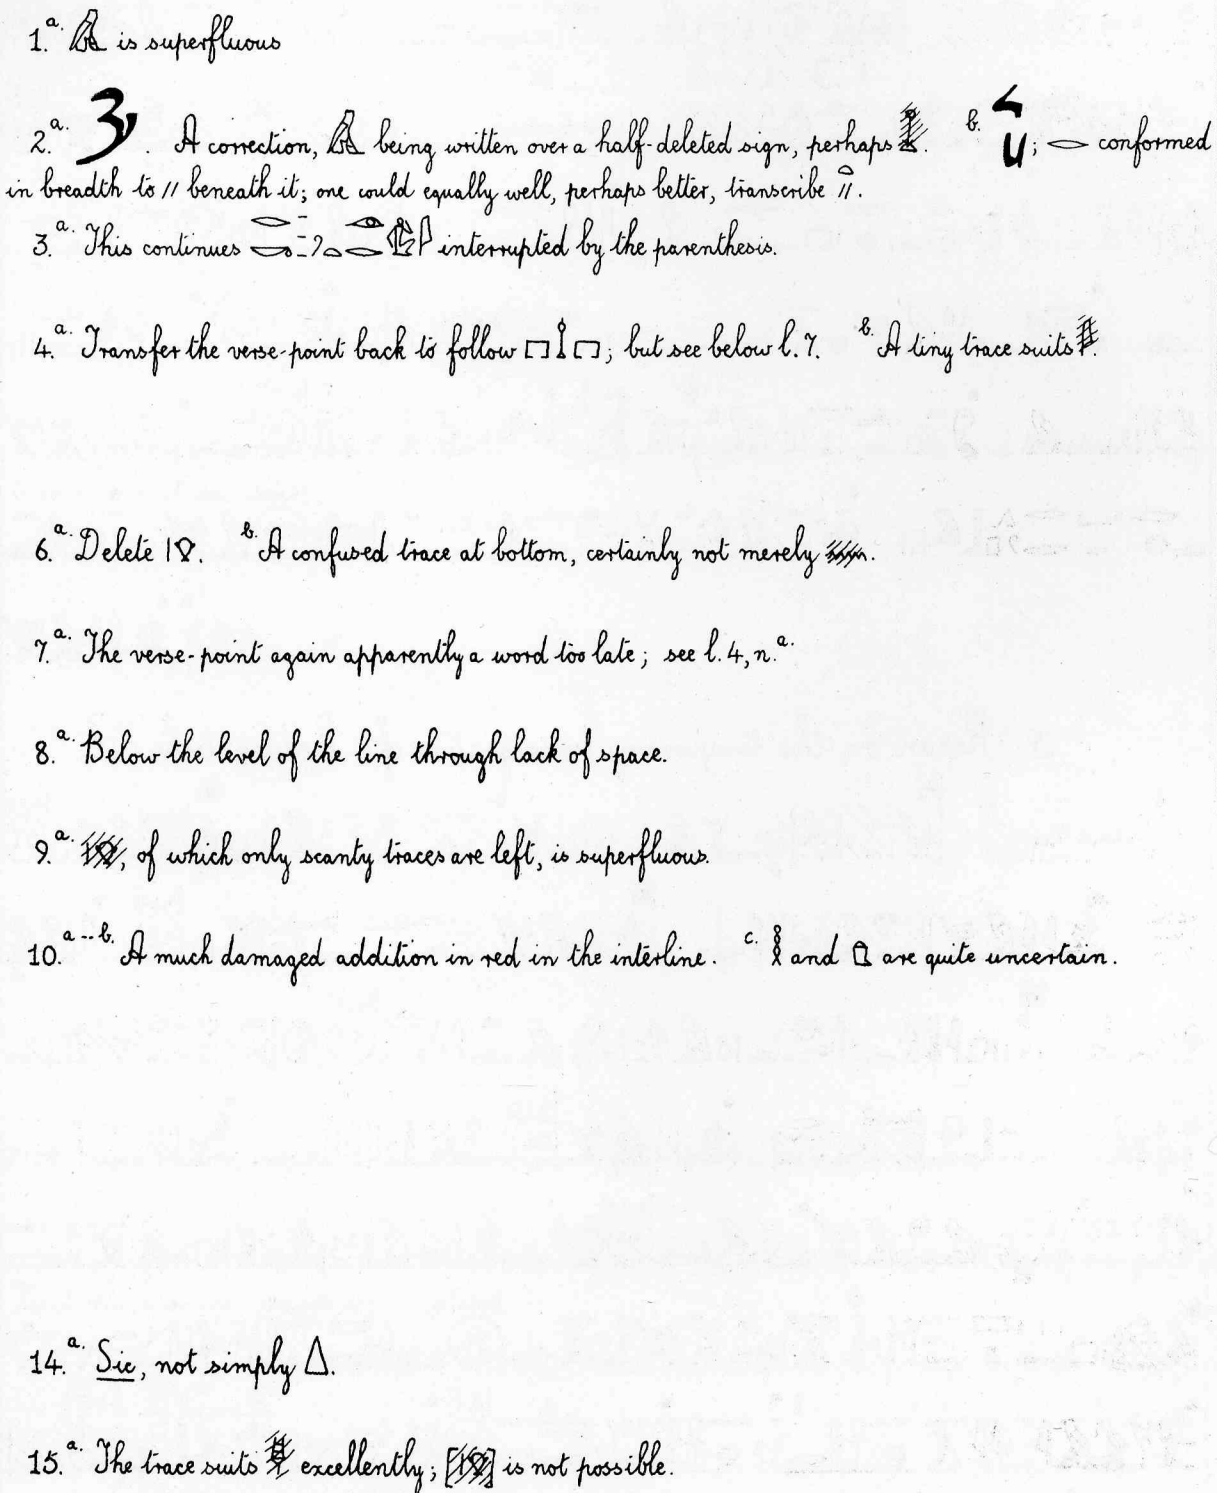 1.a. is superfluous
2.a. . A correction, being written over a half-deleted sign, perhaps . b. ; conformed
in breadth to \\ beneath it; one could equally well, perhaps better, transcribe .
3.a. This continues interrupted by the parenthesis.
4.a. Transfer the verse-point back to follow ; but see below l. 7. b. A tiny trace suits .
6.a. Delete . b. A confused trace at bottom, certainly not merely .
7.a. The verse-point again apparently a word too late; see l. 4, n.a.
8.a. Below the level of the line through lack of space.
9.a. , of which only scanty traces are left, is superfluous.
10.a--b. A much damaged addition in red in the interline. c. and are quite uncertain.
14.a. Sic, not simply .
15.a. The trace suits excellently; [ ] is not possible.